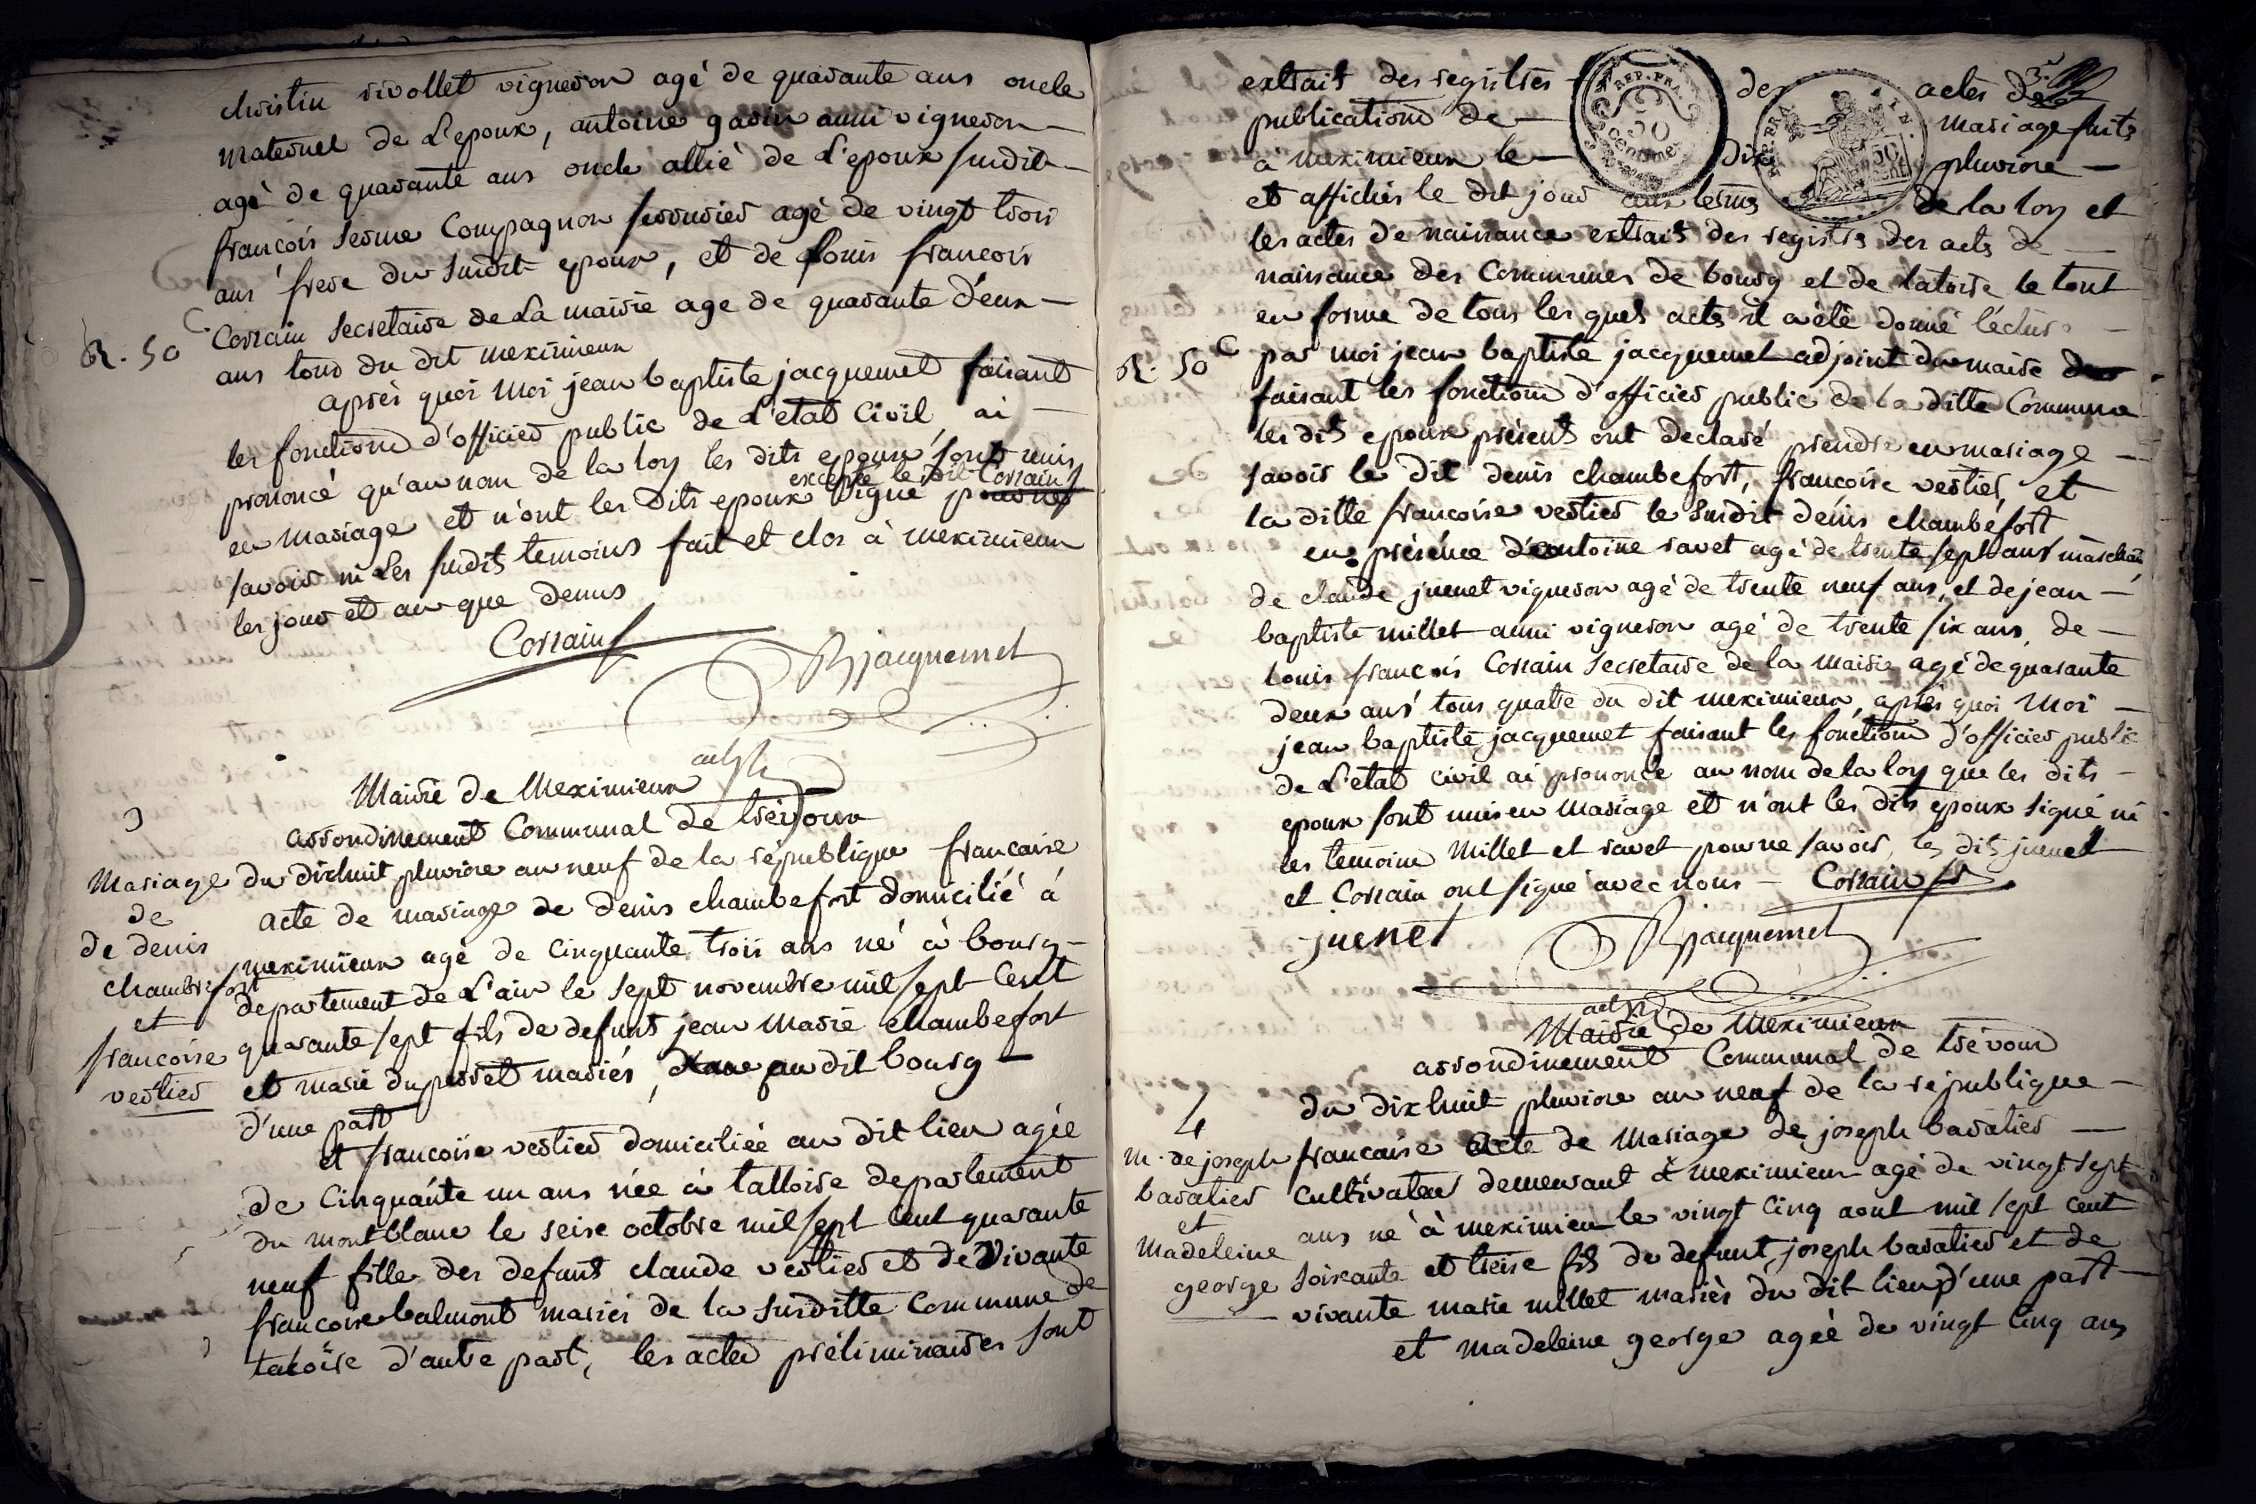 christin rivollet vigneron agé de quarante ans oncle
maternel de L'epoux, antoine gavin aussi vigneron
agé de quarante ans oncle allié de L'epoux susdit
françois serme Compagnon serrurier agé de vingt trois
ans frere du susdit epoux, et de Louis francois
Corrain secretaire de La mairie age de quarante deux
R. 50 C.
ans tous du dit meximieux
après quoi moi jean baptiste jacquemet faisant
les fonctions d'officier public de L'etat Civil, ai
prononcé qu'au nom de la loy les dits epoux sont unis
excepté le dit Corrain
en mariage et n'ont les dits epoux signé pour ne
savoir ni Les susdits temoins fait et clos à meximieux
les jour et an que dessus
Corrain
JBjacquemet
adjt
Mairie de Meximieux
arrondinement Communal de trévoux
3
Mariage
de
de denis
chambefort
et
francoise
vertier
du dixhuit pluviose an neuf de la république francaise
acte de mariage de denis chambefort domicilié à
meximieux agé de cinquante trois ans né à bourg
departement de L'ain le sept novembre mil sept Cent
quarante sept fils de defunts jean marie chambefort
et marie duperret mariés, au dit bourg
d'une part
et francoise vertier domiciliée au dit lieu agée
de Cinquante un ans née à talloire departement
du montblanc le seise octobre mil sept cent quarante
neuf fille des defunt claude vertier et de vivante
francoise balmont mariés de la susditte Commune de
taloire d'autre part, les actes préliminaires sont
extrait des registres des actes de
publications de mariage faits
à meximieux le dix pluviose
et affichés le dit jour aux termes de la loy et
REP. FRA.
50
Centimes
REP. FRA.
50
les actes de naissance extraits des registres des actes de
naissance des Communes de bourg et de latoire le tout
en forme de tous les quels actes il a été donné lecture
R. 50 C
par moi jean baptiste jacquemet adjoint du maire
faisant les fonctions d'officier public de la ditte Commune
les dits epoux présents ont declaré prendre en mariage
savoir le dit denis chambefort, francoise vertier, et
la ditte francoise vertier le susdit denis chambefort
en présence d'antoine ravet agé de trente sept ans marchand
de claude juenet vigneron agé de trente neuf ans, et de jean
baptiste millet aussi vigneron agé de trente six ans, de
Louis francois Corrain secretaire de la mairie agé de quarante
deux ans tous quatre du dit meximieux, après quoi moi
jean baptiste jacquemet faisant les fonctions d'officier public
de L'etat civil ai prononcé au nom de la loy que les dits
epoux sont unis en mariage et n'ont les dits epoux signé ni
les temoins Millet et ravet pour ne savoir, les dits juenet
et Corrain ont signé avec nous
Corrain
juenet
JBjacquemet
adjt
Mairie de Meximieux
arrondinement Communal de trévoux
4
m. de joseph
baratier
et
Madeleine
george
du dixhuit pluviose an neuf de la république
francaise acte de Mariage de joseph baratier
cultivateur demeurant à meximieux agé de vingt sept
ans né à meximieu le vingt cinq aout mil sept cent
soixante et treise fils de defunt joseph baratier et de
vivante marie millet mariés du dit lieu d'une part
et madeleine george agée de vingt cinq ans